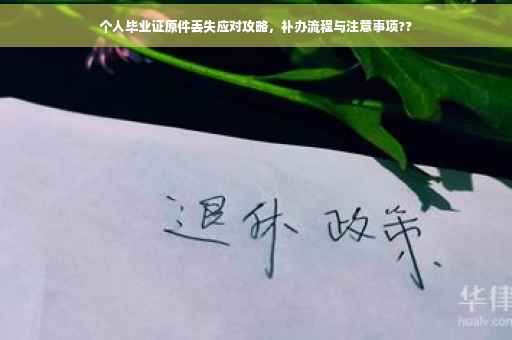 个人毕业证原件丢失应对攻略，补办流程与注意事项??
退休 政策
华律
hualv.com